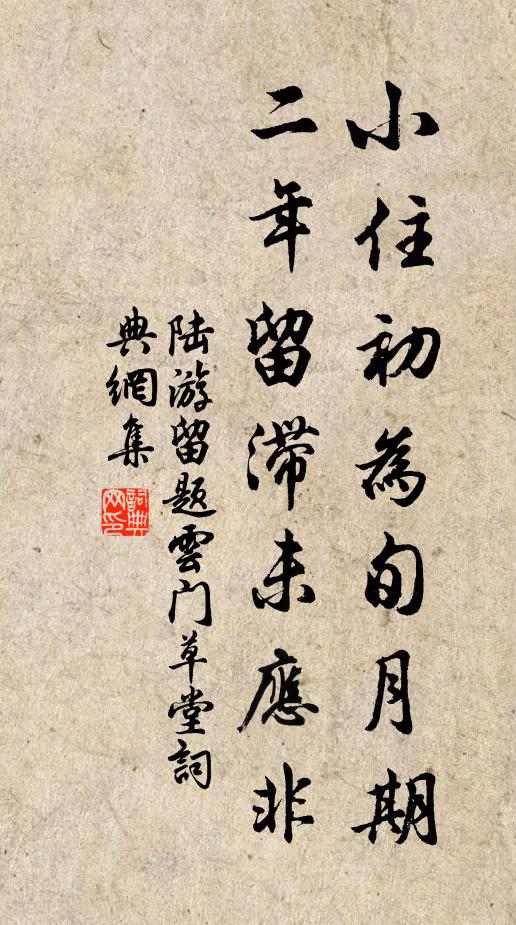 小住初為旬月期
二年留滯未應非
陆游留题雲门草堂詞
典網集
詞典
网印